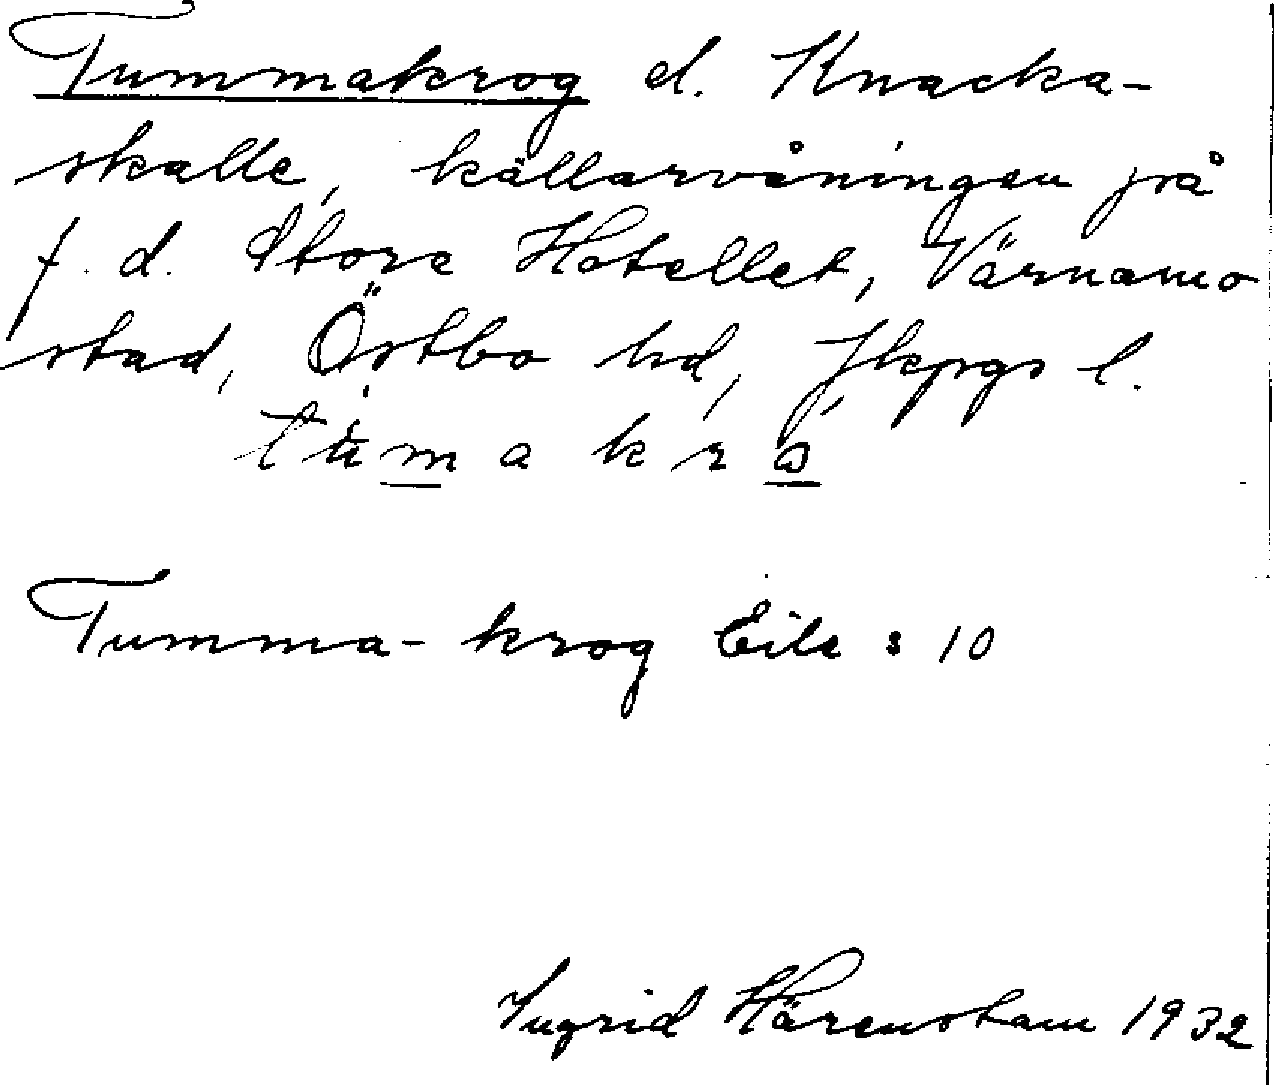 Tummakrog el. Knacka-
skalle, källarvåningen på
f.d. Stora Hotellet, Värnamo
stad, Östbo hd, Jkpgs l.
Tumma-krog Eile : 10
Ingrid Härenstam 1932